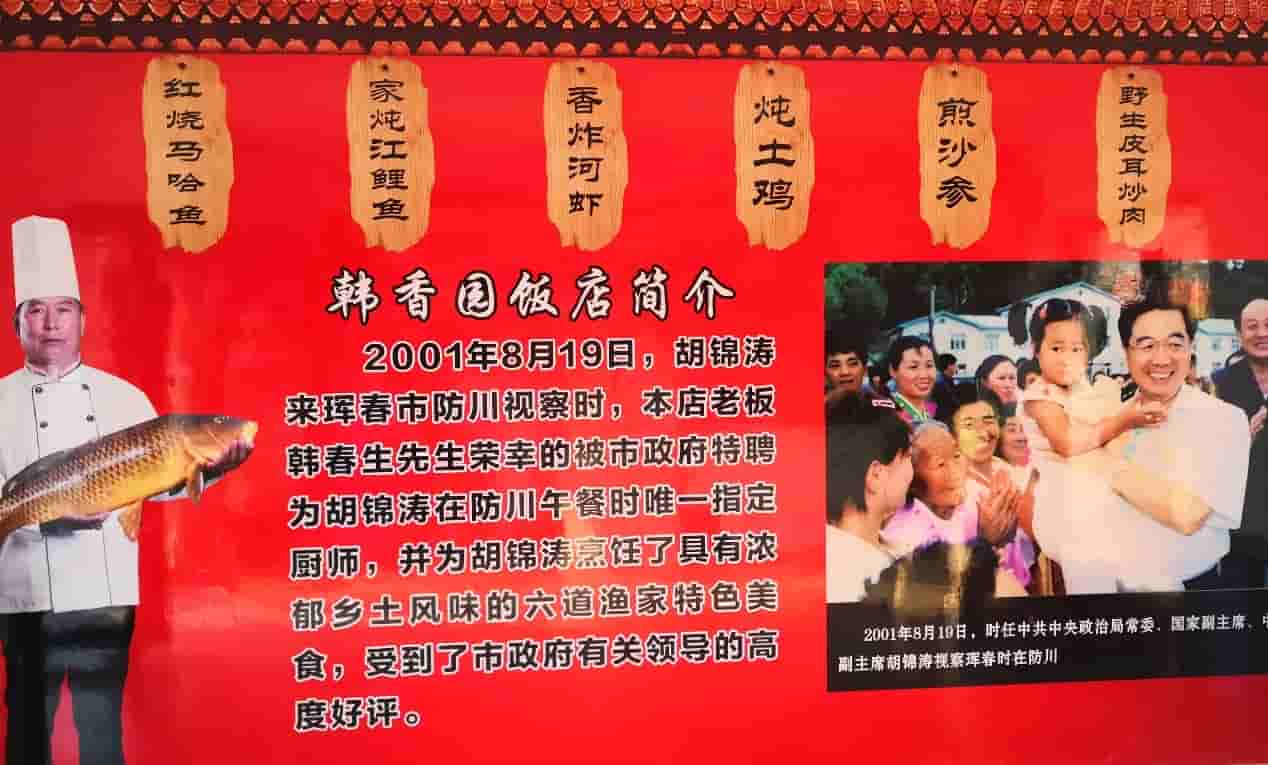 红烧马哈鱼
家炖江鲤鱼
香炸河虾
炖土鸡
煎沙参
野生皮耳炒肉
韩香园饭店简介
2001年8月19日，胡锦涛
来珲春市防川视察时，本店老板
韩春生先生荣幸的被市政府特聘
为胡锦涛在防川午餐时唯一指定
厨师，并为胡锦涛烹饪了具有浓
郁乡土风味的六道渔家特色美
食，受到了市政府有关领导的高
度好评。
2001年8月19日，时任中共中央政治局常委、国家副主席、
副主席胡锦涛视察珲春时在防川